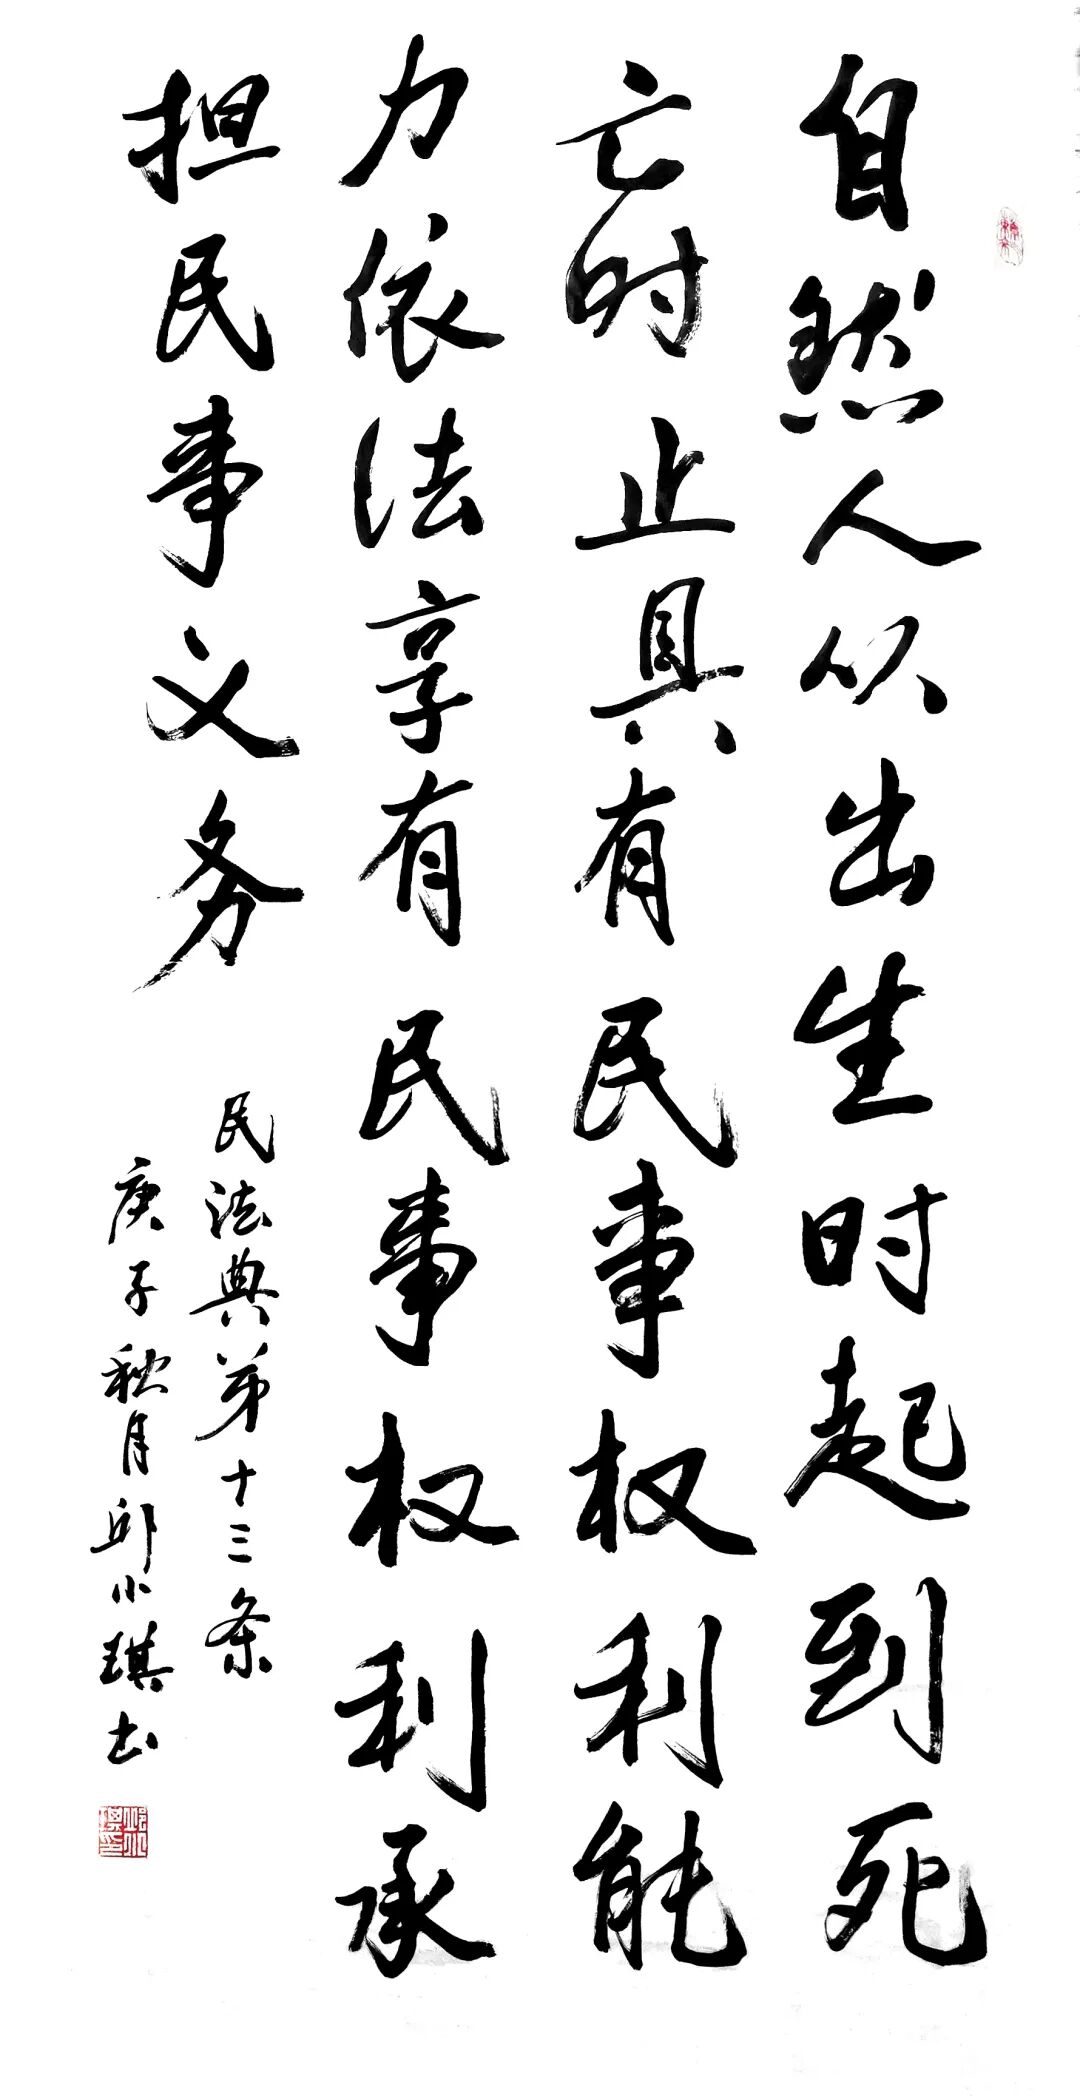 自然人从出生时起到死
亡时止具有民事权利能
力依法享有民事权利承
担民事义务
民法典第十三条
庚子秋月邱小琪书